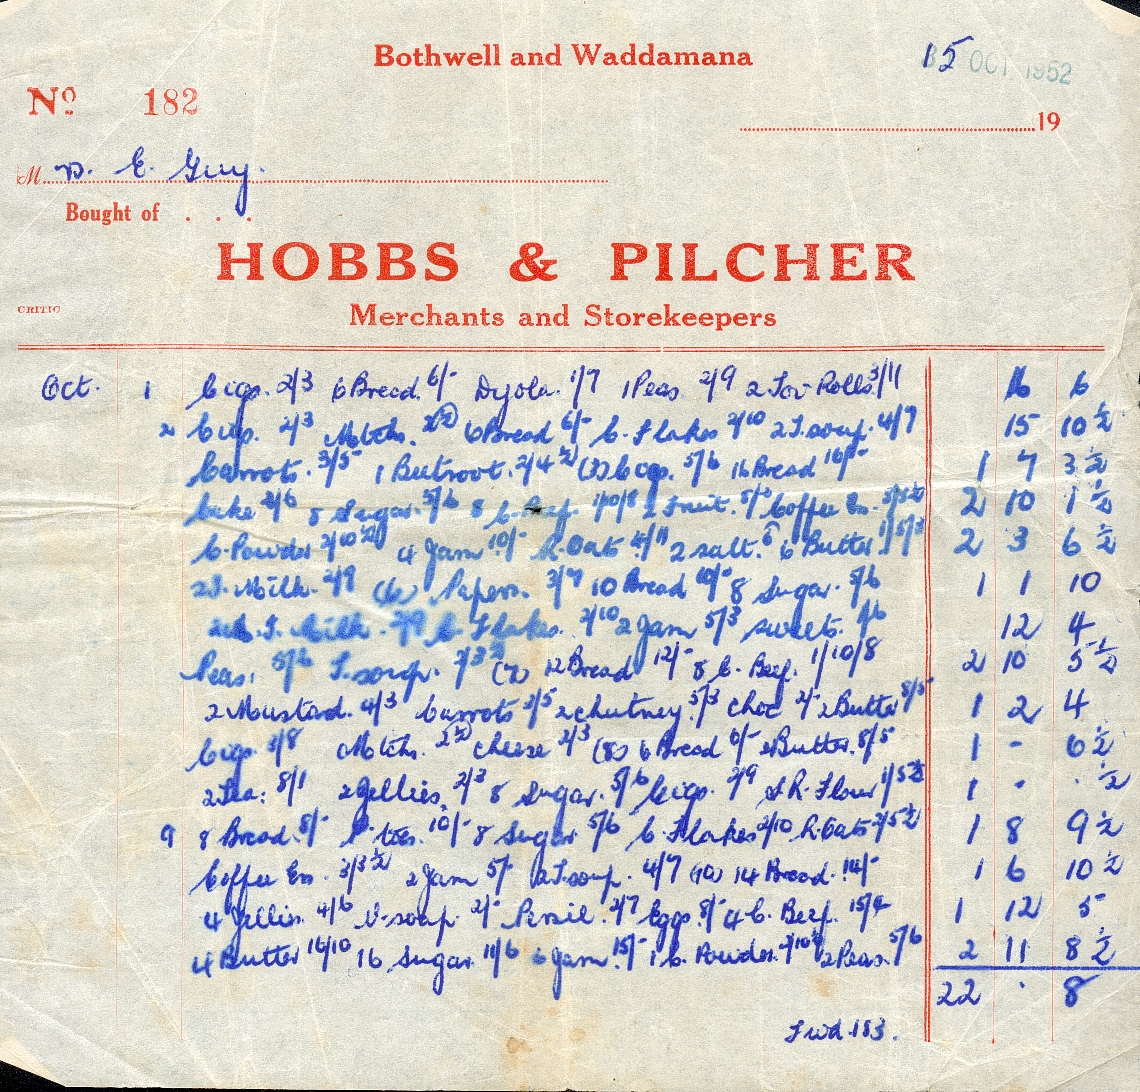 Bothwell and Waddamana
15 OCT 1952
No 182
19
M D. E. Guy.
Bought of . . .
HOBBS & PILCHER
CRITIC
Merchants and Storekeepers
Oct. 1 Cigs. 2/3 6 Bread. 6/- Dyola. 1/7 1 Peas 2/9 2 Toi-Rolls 3/11 16 6
2 Cigs. 2/3 Mtchs. 2½ 6 Bread 6/- C. Flakes 2/10 2 T. soup. 4/7 15 10½
Carrots. 3/5 1 Beetroot. 2/4½ (3) Cigs. 5/6 16 Bread 16/- 1 7 3½
Cake 2/6 8 Sugar. 5/6 8 C. Beef. 1/10/8 Fruit. Coffee Es. 2 10 1½
C. Powder 2/10½ 4 Jam 10/- R. Oats 4/11 2 salt. 6 Butter 2 3 6½
2 T. Milk. 2/9 (6) Papers. 3/9 10 Bread 10/- 8 Sugar. 5/6 1 1 10
T. Milk. 2/9 C. Flakes. 2/10 2 Jam 5/3 sweets. 12 4
Peas. 5/6 T. soup. 2/3½ (7) 12 Bread 12/- 8 C. Beef. 1/10/8 2 10 5½
2 Mustard. 4/3 Carrots 3/5 2 chutney. 5/3 choc 2/- 2 Butter 8/5 1 2 4
Cigs. 3/8 Mtchs. 2½ cheese 2/3 (8) 6 Bread 6/- 2 Butter. 8/5 1 - 6½
2 Tea. 8/1 2 Jellies. 2/3 8 Sugar. 5/6 Cigs. 2/9 S. R. Flour 1 - . ½
9 8 Bread. 8/- P. toes. 10/- 8 Sugar 5/6 C. Flakes 2/10 R. Oats 2/5½ 1 8 9½
Coffee Es. 3/3½ 2 Jam 5/- 2 T. soup. 4/7 (10) 14 Bread. 14/- 1 6 10½
4 Jellies. 4/6 V. soap. 2/- Persil. 2/7 Eggs. 8/- 4 C. Beef. 15/4 1 12 5
4 Butter 16/10 16 Sugar. 11/6 6 Jam. 15/- 1 C. Powder. 2/10½ 2 Peas. 5/6 2 11 8½
22 . 8
Fwd. 183.